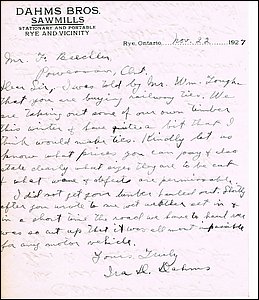 DAHMS BROS.
SAWMILLS
STATIONARY AND PORTABLE
RYE AND VICINITY
Rye, Ontario Nov. 22 1927
Mr. F. Beechler
Powassan, Ont.
Dear Sir, I was told by Mr. Wm.
that you are buying railway ties. We
are taking out some of our own timber
this winter & have quite a bit that I
think would make ties. Kindly let us
know what prices you can pay & also
state clearly what sizes they are to be cut
& what wane & defects are permissible.
I did not get your lumber hauled out. Shortly
after you wrote to me wet weather set in &
in a short time the road we have to haul over
was so cut up that it was all most impassible
for any motor vehicle.
Yours Truly
Ira D. Dahms